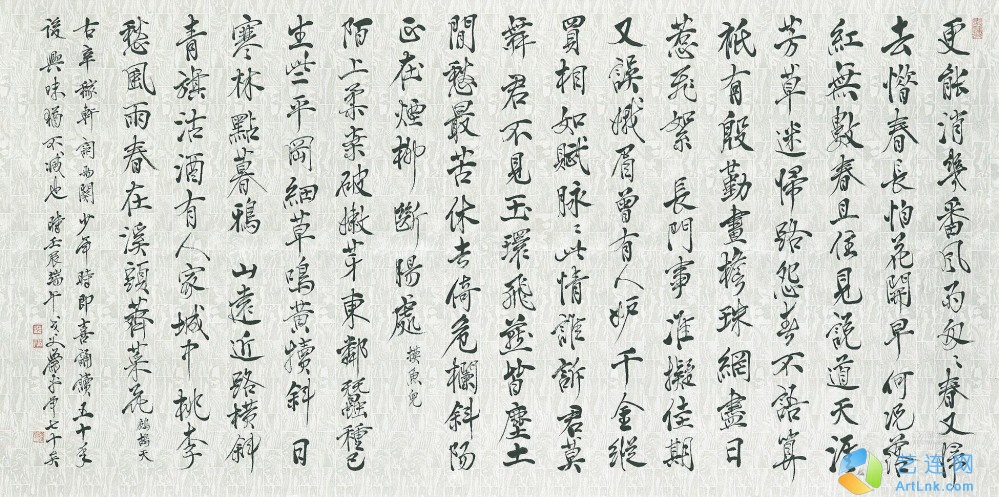 更能消幾番風雨匆〻春又歸
去惜春長怕花開早何況落
紅無數春且住見說道天涯
芳草迷歸路怨春不語算
祇有殷勤畫檐珠網盡日
惹飛絮 長門事準擬佳期
又誤娥眉曾有人妒千金縱
買相如賦脉〻此情誰訴君莫
舞君不見玉環飛燕皆塵土
閒愁最苦休去倚危欄斜陽
正在煙柳斷腸處 摸魚兒
陌上柔桑破嫩芽東鄰蠶種已
生些平岡細草鳴黃犢斜日
寒林點暮鴉 山遠近路橫斜
青旗沽酒有人家城中桃李
愁風雨春在溪頭薺菜花 鷓鴣天
右辛稼軒詞兩闋少年時即喜誦讀五十年
後興味猶不減也 時壬辰端午 年七十矣
艺连网
ArtLnk.com